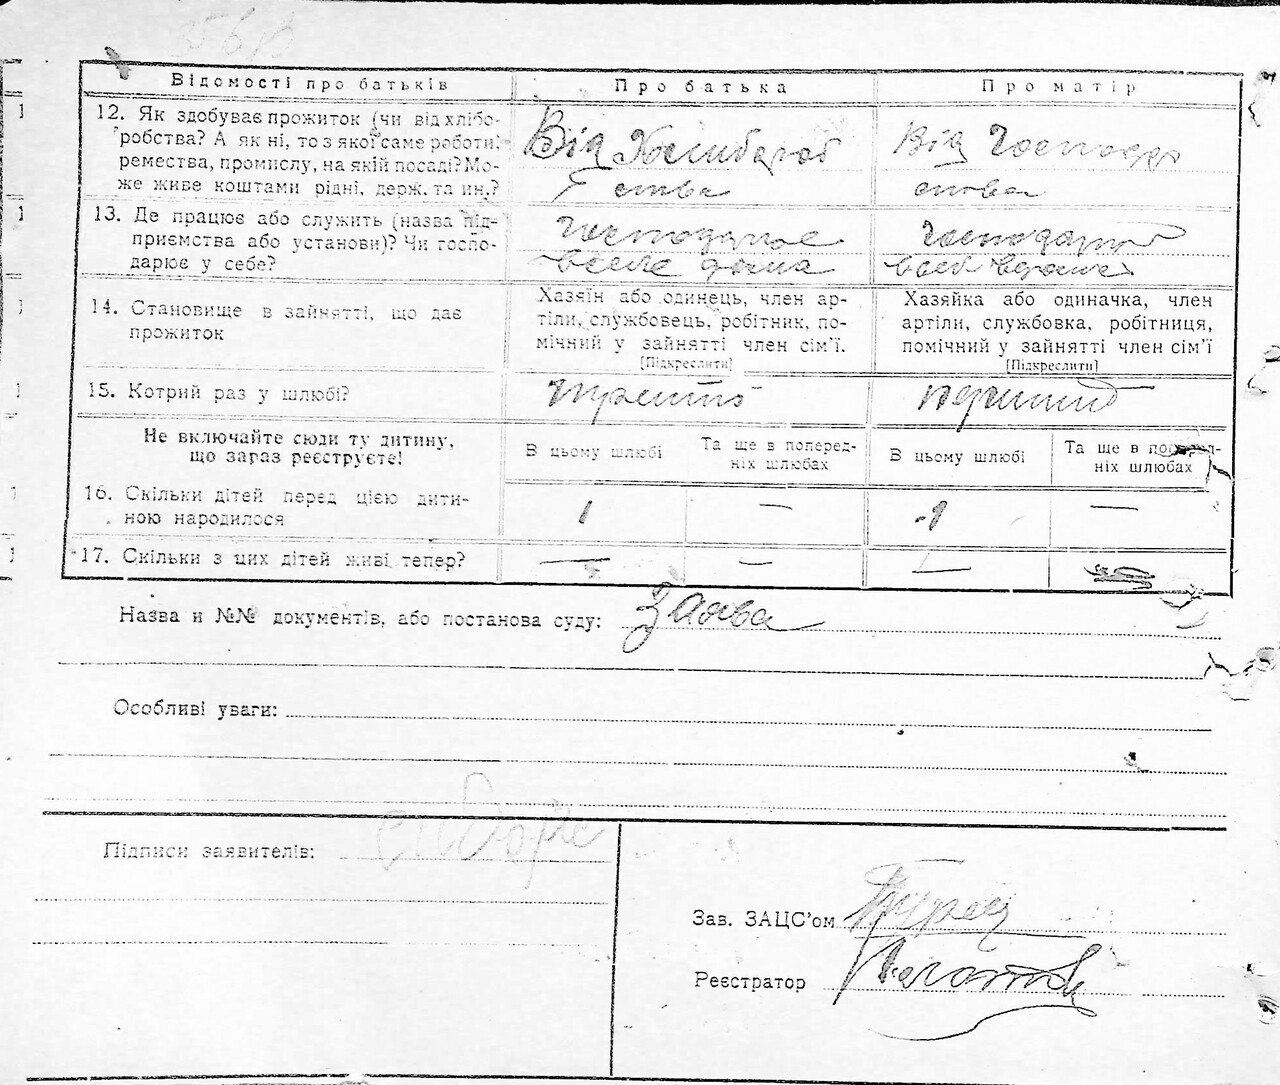 Відомості про батьків
Про батька
Про матір
12. Як здобуває прожиток (чи від хлібо-
робства? А як ні, то з якої саме роботи:
ремества, промислу, на якій посаді? Мо-
же живе коштами рідні, держ. та ин.?
Від
ства
Від Господар
ства
13. Де працює або служить (назва під-
приємства або установи)? Чи госпо-
дарює у себе?
дома
14. Становище в зайнятті, що дає
прожиток
Хазяїн або одинець, член ар-
тіли, службовець, робітник, по-
мічний у зайнятті член сім'ї.
[Підкреслити]
Хазяйка або одиначка, член
артіли, службовка, робітниця,
помічний у зайнятті член сім'ї
[Підкреслити]
15. Котрий раз у шлюбі?
Не включайте сюди ту дитину,
що зараз реєструєте!
В цьому шлюбі
Та ще в поперед-
ніх шлюбах
В цьому шлюбі
Та ще в поперед-
ніх шлюбах
16. Скільки дітей перед цією дити-
ною народилося
1
—
1
—
17. Скільки з цих дітей живі тепер?
—
—
—
Назва и №№ документів, або постанова суду: Заява
Особливі уваги:
Підписи заявителів:
Зав. ЗАЦС'ом
Реєстратор